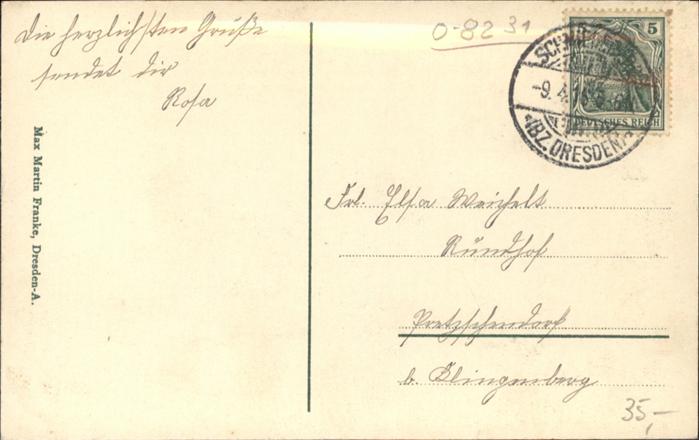 Die herzlichsten Grüße
sendet dir
Rosa
Max Martin Franke, Dresden-A.
0-8231
5
DEUTSCHES REICH
-9.4.
(BZ. DRESDEN)
Frl. Elsa Weichelt
Rundhof
Pretzschendorf
b. Klingenberg
35,-